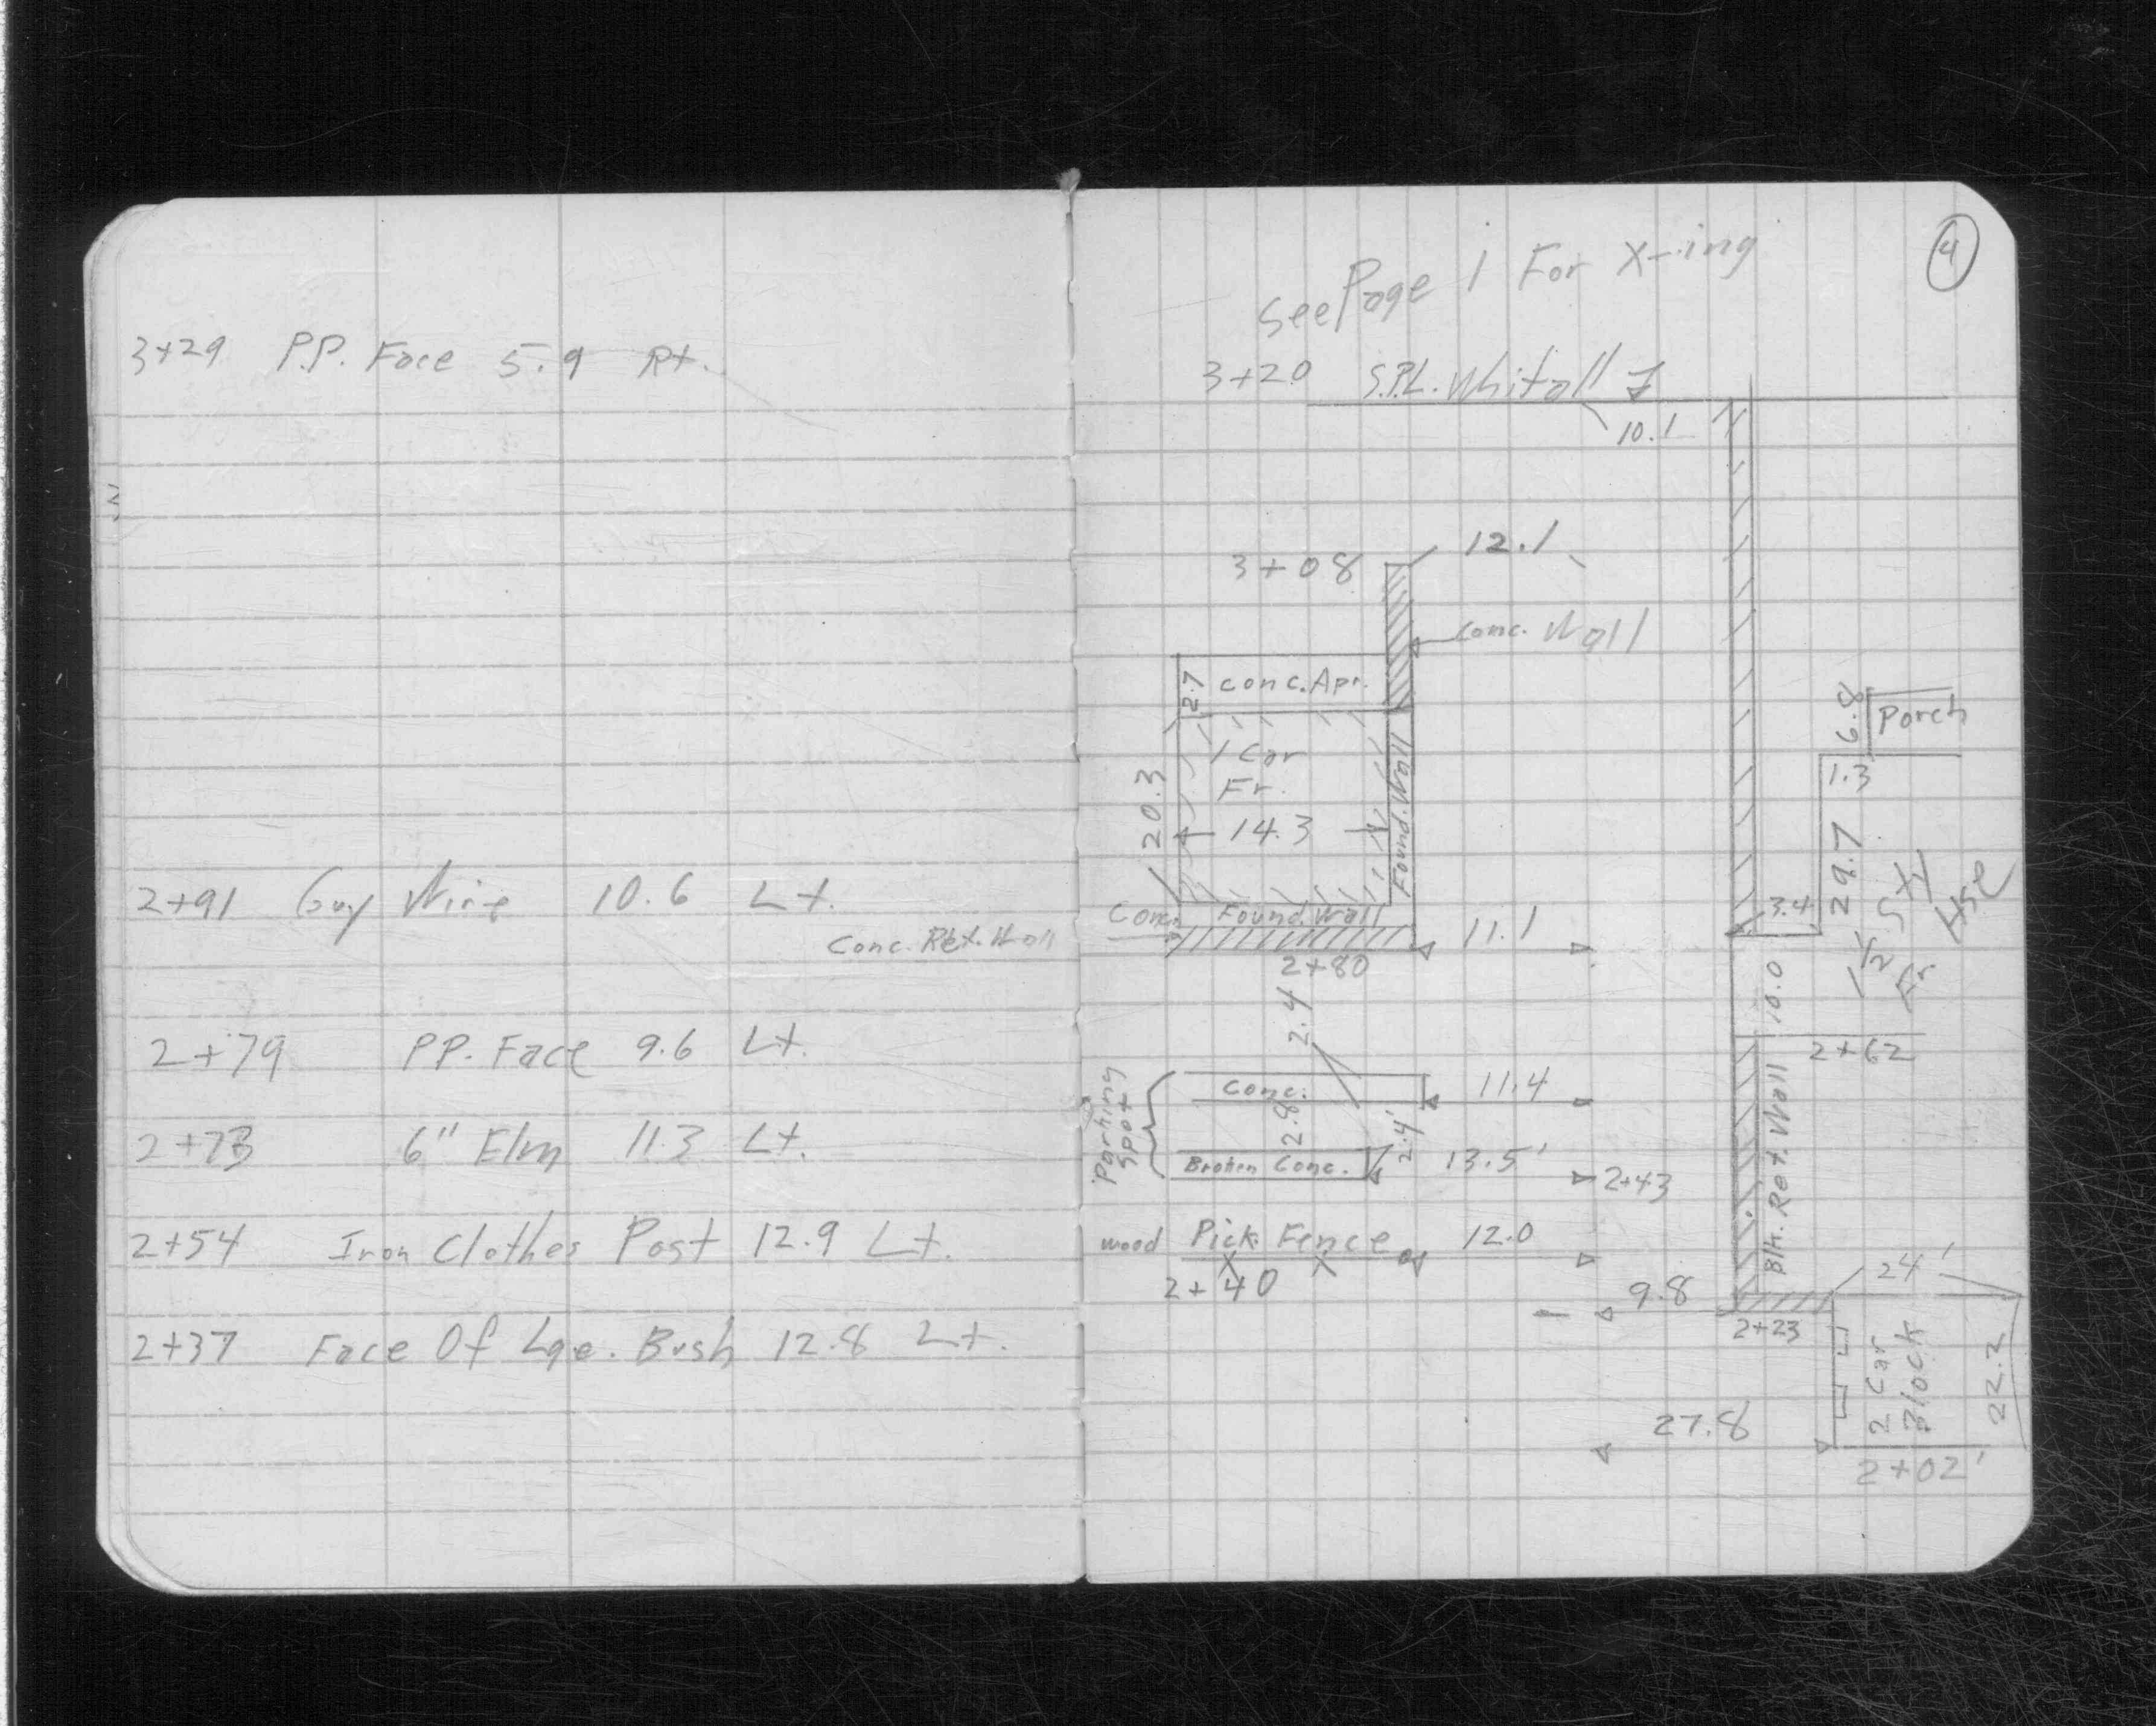 3+29 P.P. Face 5.9 Rt.
2+91 Guy Wire 10.6 Lt.
Conc. Ret. Wall
2+79 P.P. Face 9.6 Lt.
2+73 6" Elm 11.3 Lt.
2+54 Iron Clothes Post 12.9 Lt.
2+37 Face Of Lge. Bush 12.8 Lt.
4
See Page 1 For X-ing
3+20 S.P.L. Whitall
10.1
3+08 12.1
Conc. Wall
2.7 Conc. Apr.
6.8 Porch
1 Car
Fr.
14.3
20.3
Found. Wall
1.3
29.7
1 1/2 Sty
Fr Hse
3.4
Conc. Found. Wall
11.1
2+80
10.0
2.4
2+62
Parking Spot
Conc. 11.4
2.8
2.4'
Broken Conc. 13.5' 2+43
Blk. Ret. Wall
wood Pick. Fence 12.0
2+40
24'
9.8
2+23
2 Car
Block
22.2
27.8
2+02'